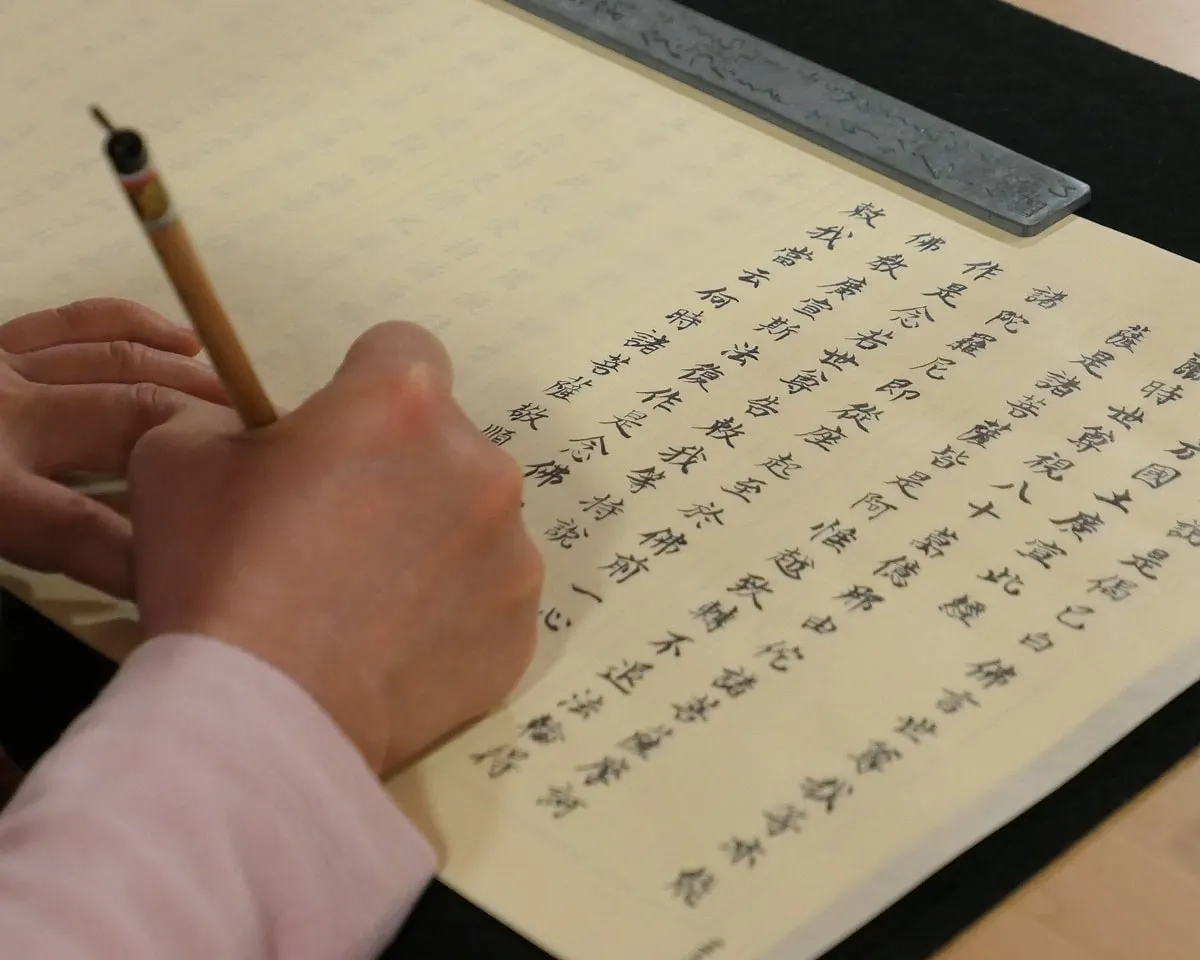 說是偈已白佛言世尊我等亦能
方國土廣宣此經
爾時世尊視八十萬億那由佗諸菩薩摩訶
薩是諸菩薩皆是阿惟越致轉不退法輪得
諸陀羅尼即從座起至於佛前一心
作是念若世尊告敕我等持說
佛教廣宣斯法復作是念佛
敕我當云何時諸菩薩敬順